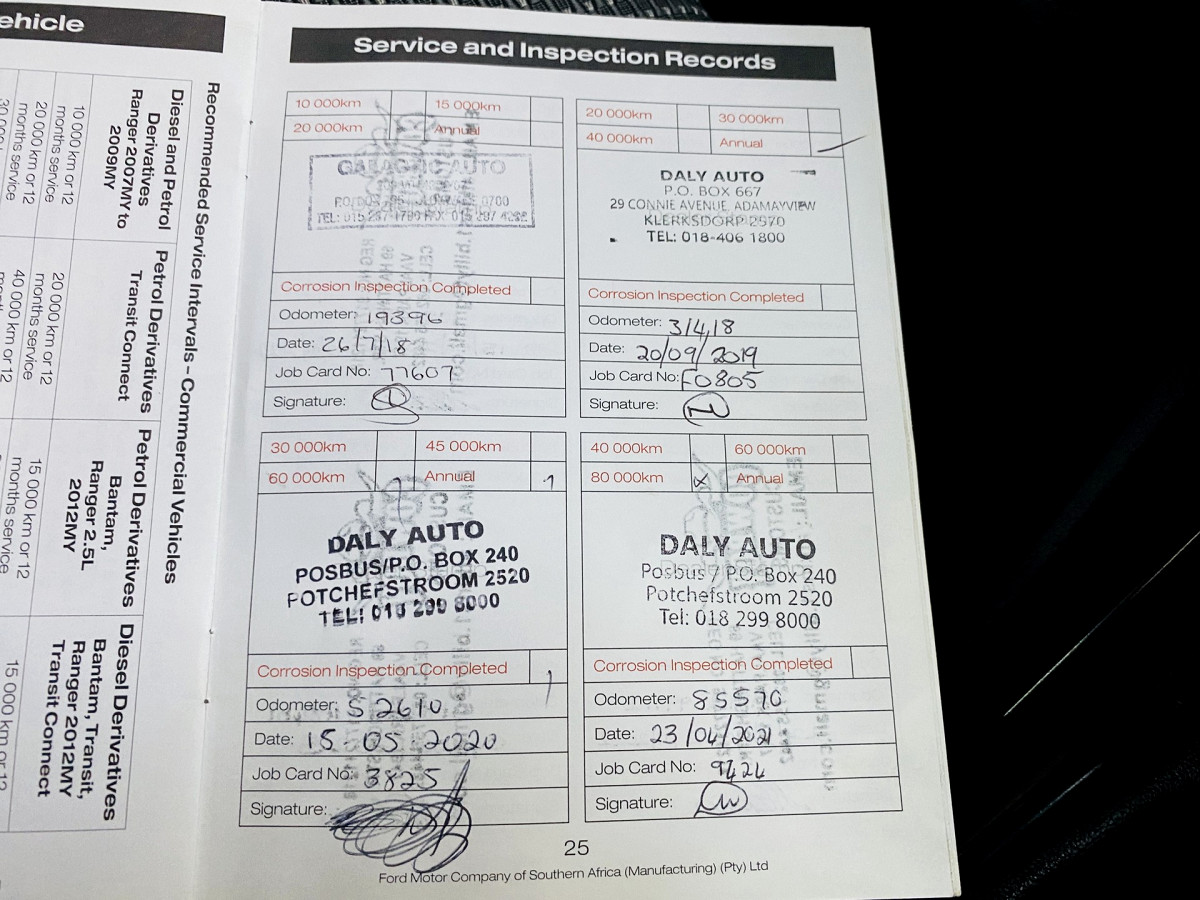 ehicle
Recommended Service Intervals – Commercial Vehicles
Diesel and Petrol
Derivatives
Ranger 2007MY to
2009MY
10 000 km or 12
months service
20 000 km or 12
months service
30 000
Petrol Derivatives
Transit Connect
20 000 km or 12
months service
40 000 km or 12
Petrol Derivatives
Bantam,
Ranger 2.5L
2012MY
15 000 km or 12
months service
Diesel Derivatives
Bantam, Transit,
Ranger 2012MY
Transit Connect
15 000 km or 12
Service and Inspection Records
10 000km 15 000km
20 000km Annual
AUTO
0700
TEL: 015
Corrosion Inspection Completed
Odometer: 19396
Date: 26/7/18
Job Card No: 77607
Signature:
20 000km 30 000km
40 000km Annual
DALY AUTO
P.O. BOX 667
29 CONNIE AVENUE, ADAMAYVIEW
KLERKSDORP 2570
TEL: 018-406 1800
Corrosion Inspection Completed
Odometer: 3/4/18
Date: 20/09/2019
Job Card No: F0805
Signature:
30 000km 45 000km
60 000km Annual
DALY AUTO
POSBUS/P.O. BOX 240
POTCHEFSTROOM 2520
TEL: 018 299 8000
Corrosion Inspection Completed
Odometer: 52610
Date: 15-05-2020
Job Card No: 3825
Signature:
40 000km 60 000km
80 000km Annual
DALY AUTO
Posbus / P.O. Box 240
Potchefstroom 2520
Tel: 018 299 8000
Corrosion Inspection Completed
Odometer: 85570
Date: 23/04/2021
Job Card No: 9424
Signature:
25
Ford Motor Company of Southern Africa (Manufacturing) (Pty) Ltd